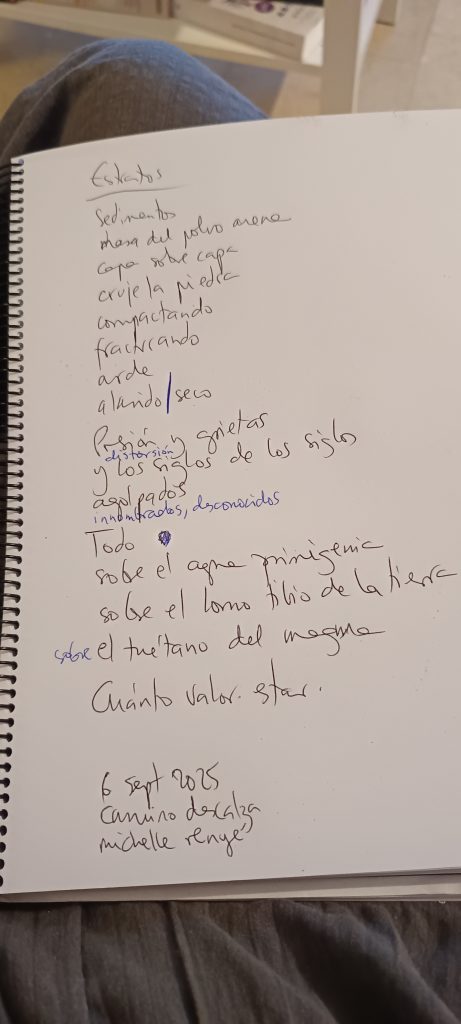 Estratos
sedimentos
masa del polvo arena
capa sobre capa
cruje la piedra
compactando
fracturando
arde
alarido/seco
Presión y grietas
distorsión
y los siglos de los siglos
agolpados
innombrados, desconocidos
Todo
sobre el agua primigenia
sobre el lomo tibio de la tierra
sobre el tuétano del magma
Cuánto valor. estar.
6 sept 2025
camino descalza
michelle renyé